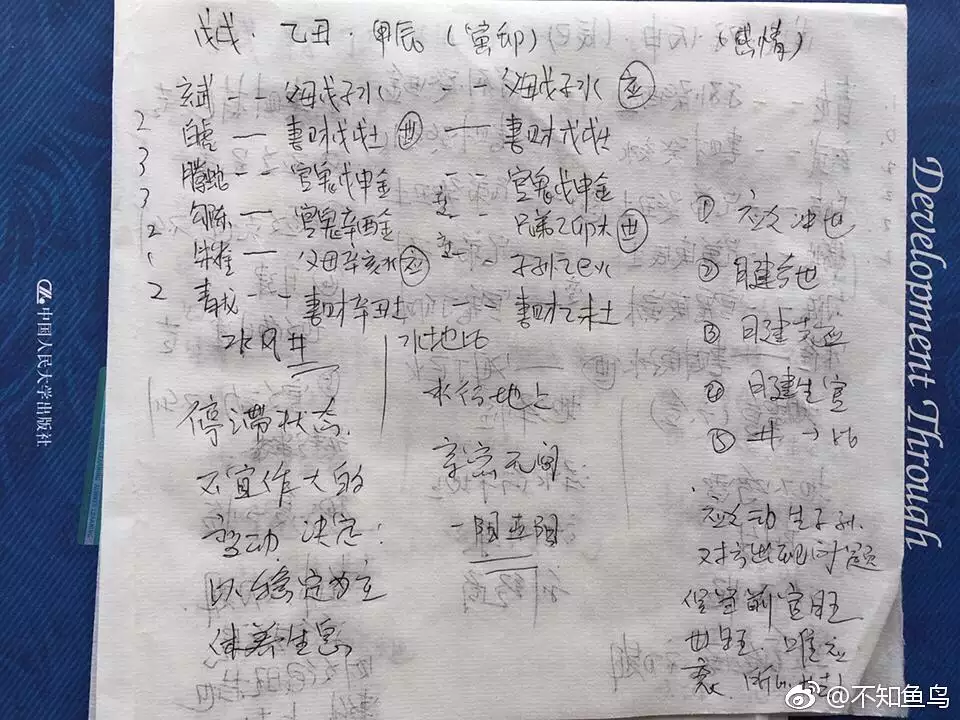 戊戌·乙丑·甲辰(寅卯)(感情)
玄武 -- 父母戊子水 -- 父母戊子水 应
2 白虎 — 妻财戊戌土 世 — 妻财戊戌土
3 腾蛇 -- 官鬼戊申金 -- 官鬼戊申金
3 勾陈 — 官鬼辛酉金 -- 兄弟乙卯木 世
2 朱雀 — 父母辛亥水 应 -- 子孙乙巳火
2 青龙 -- 妻财辛丑土 妻财乙未土
水风井
水地比
停滞状态
不宜作大的
变动 决定:
以稳定为主
休养生息
水行地上
亲密无间
① 应爻冲世
② 月建合世
③ 日建克应
④ 日建生官
⑤ 井→比
应动生子孙
对方出现问题
保官前官旺
世旺 唯应
衰
中国人民大学出版社
Development Through
@不知鱼鸟